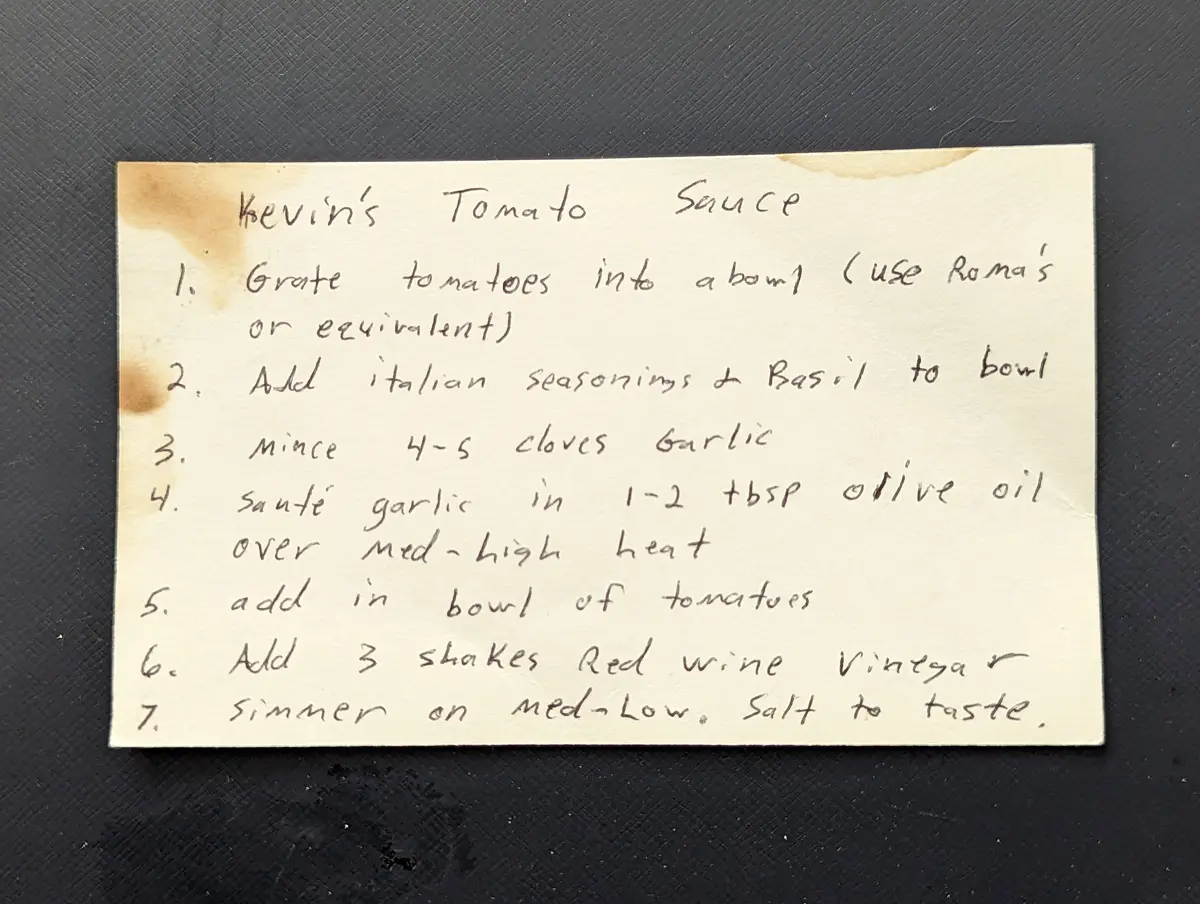 Kevin's Tomato Sauce
1. Grate tomatoes into a bowl (use Roma's
or equivalent)
2. Add italian seasonings & Basil to bowl
3. Mince 4-5 cloves Garlic
4. Sauté garlic in 1-2 tbsp olive oil
over med-high heat
5. add in bowl of tomatoes
6. Add 3 shakes Red wine Vinegar
7. Simmer on med-Low. Salt to taste.